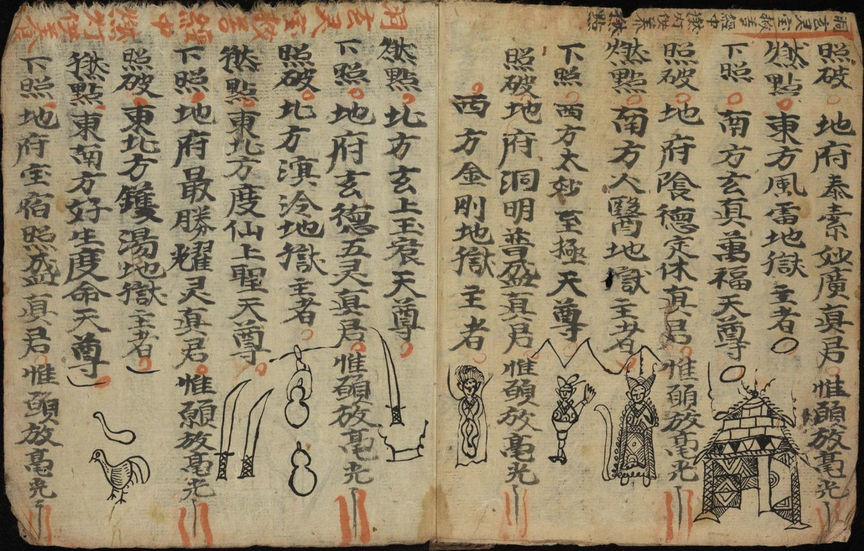 照破地府泰素妙廣真君惟願放毫光
燃點東方風雷地獄主者
下照南方玄真萬福天尊
照破地府陰德定休真君惟願放毫光
燃點南方人醫地獄主者
下照西方太妙至極天尊
照破地府洞明普盛真君惟願放毫光
西方金剛地獄主者
洞玄灵宝救苦經中燃灯供养
燃點北方玄上玉宸天尊
下照地府玄德五灵真君惟願放毫光
照破北方溟泠地獄主者
燃點東北方度仙上聖天尊
下照地府最勝耀灵真君惟願放毫光
照破東北方鑊湯地獄主者
燃點東南方好生度命天尊
下照地府宝宿照盛真君惟願放毫光